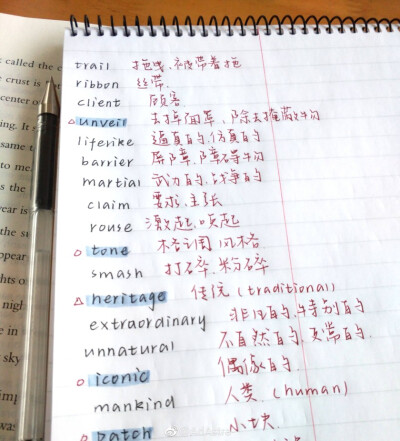 called the c
crust is
center o
ing. It
same t
to me.
the s
year is
appear
hts o
nigh
e in
sky
was
trail 拖曳、被带着拖
ribbon 丝带
client 顾客
△ unveil 去掉面罩、除去掩蔽物
lifelike 逼真的、仿真的
barrier 屏障、障碍物
martial 武力的、战争的
claim 要求、主张
rouse 激起、唤起
○ tone 格调 风格
smash 打碎、粉碎
△ heritage 传统 (traditional)
extraordinary 非凡的、特别的
unnatural 不自然的、反常的
○ iconic 偶像的
mankind 人类 (human)
○ patch 小块